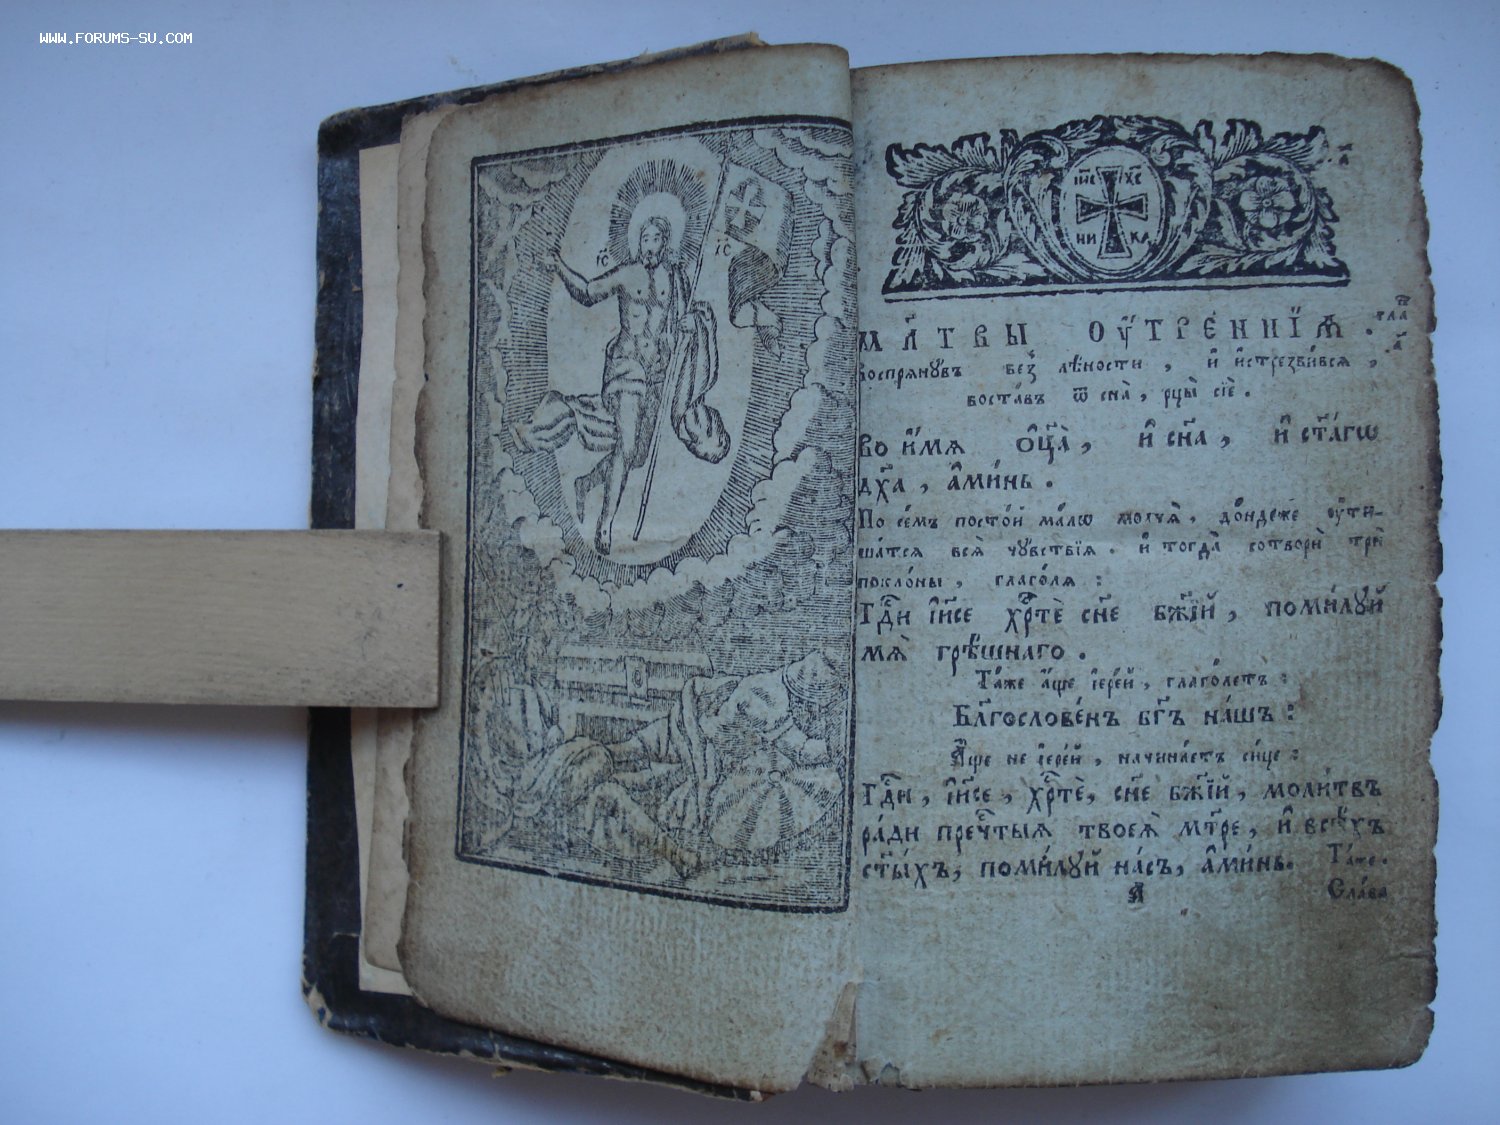 WWW.FORUMS-SU.COM
І҃С Х҃С
І҆И҃С Х҃С
НИ КА
М҃ЛТВЫ ОУ҆́ТРЕННІѦ.
Воспрѧнꙋвъ без̾ лѣ́ности, и҆ и҆стрезви́всѧ,
воста́въ ѿ сна̀, рцы̀ сїѐ.
Во и҆́мѧ ѻ҆ц҃а̀, и҆ сн҃а, и҆ ст҃а́гѡ
дх҃а, а҆ми́нь.
По се́мъ посто́й ма́лѡ молча̀, до́ндеже оу҆ти-
ша́тсѧ всѧ̀ чꙋ̑вствїѧ. и҆ тогда̀ сотворѝ трѝ
покло́ны, глаго́лѧ:
Гдⷭ҇и і҆и҃се хрⷭ҇тѐ сн҃е бж҃їй, поми́лꙋй
мѧ̀ грѣ́шнаго.
Та́же а҆́ще і҆ере́й, глаго́летъ:
Бл҃гослове́нъ бг҃ъ на́шъ:
А҆́ще не і҆ере́й, начина́етъ си́це:
Гдⷭ҇и, і҆и҃се, хрⷭ҇тѐ, сн҃е бж҃їй, моли́твъ
ра́ди пречⷭ҇тыѧ твоеѧ̀ мт҃ре, и҆ всѣ́хъ
ст҃ы́хъ, поми́лꙋй на́съ, а҆ми́нь. Та́же.
А Сла́ва